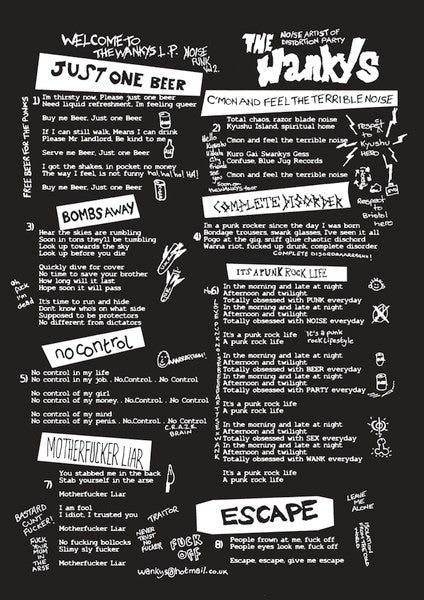 WELCOME TO
THE WANKYS L.P.
NOISE
PUNK
Vol 2.
JUST ONE BEER
1) I'm thirsty now, Please just one beer
Need liquid refreshment, I'm feeling queer
Buy me Beer, Just one Beer
If I can still walk, Means I can drink
Please Mr landlord, Be kind to me
Serve me Beer, Just one Beer
I got the shakes, in pocket no money
The way I feel, is not funny ha! ha! ha! HA!
Buy me Beer, Just one Beer
FREE BEER FOR THE PUNKS
BOMBS AWAY
3)
Hear the skies are rumbling
Soon in tons they'll be tumbling
Look up towards the sky
Look up before you die
Quickly dive for cover
No time to save your brother
How long will it last
Hope soon it will pass
It's time to run and hide
Don't know who's on what side
Supposed to be protectors
No different from dictators
oh
fuck
I'm
dead
no control
5) No control in my life
No control in my job..No.Control..No Control
No control of my girl
No control of my money..No.Control..No Control
No control of my mind
No control of my penis..No.Control..No Control
C.R.A.Z.E
BRAIN
MOTHERFUCKER LIAR
7)
You stabbed me in the back
Stab yourself in the arse
Motherfucker Liar
I am fool
I idiot, I trusted you
Motherfucker Liar
No fucking bollocks
Slimy sly fucker
Motherfucker Liar
BASTARD
CUNT
FUCKER!
FUCK
YOUR
MUM
IN THE
ARSE
TRAITOR
NEVER
TRUST
NO
FUCKER
FUCK
OFF
wankys@hotmail.co.uk
NOISE ARTIST OF
DISTORTION PARTY
THE
Wankys
C'MON AND FEEL THE TERRIBLE NOISE
2)
Total chaos, razor blade noise
Kyushu Island, spiritual home
Cmon and feel the terrible noise
Kuro Gai Swankys Gess
Confuse, Blue Jug Records
Cmon and feel the terrible noise
Hello
Kyushu
friends
see
you
soon
respect
to
Kyushu
HERO
COMPLETE DISORDER
4)
I'm a punk rocker since the day I was born
Bondage trousers, swank glasses, I've seen it all
Pogo at the gig, sniff glue chaotic dischord
Wanna riot, fucked up drunk, complete disorder
Respect
to
Bristol
Hero
IT'S A PUNK ROCK LIFE
6)
In the morning and late at night
Afternoon and twilight
Totally obsessed with PUNK everyday
In the morning and late at night
Afternoon and twilight
Totally obsessed with NOISE everyday
It's a punk rock life
A punk rock life
It's a punk
rock lifestyle
In the morning and late at night
Afternoon and twilight
Totally obsessed with BEER everyday
In the morning and late at night
Afternoon and twilight
Totally obsessed with PARTY everyday
It's a punk rock life
A punk rock life
In the morning and late at night
Afternoon and twilight
Totally obsessed with SEX everyday
In the morning and late at night
Afternoon and twilight
Totally obsessed with WANK everyday
It's a punk rock life
A punk rock life
ESCAPE
8)
People frown at me, fuck off
People eyes look me, fuck off
Escape, escape, give me escape
LEAVE
ME
ALONE
ISOLATION
FROM THE
WORLD